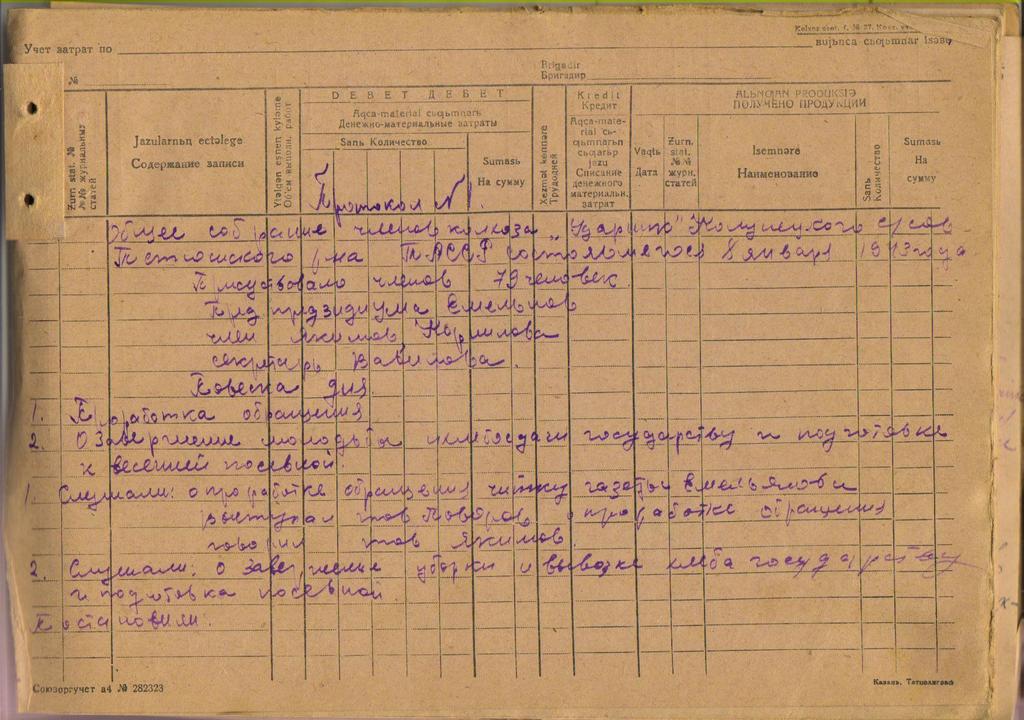 Kolxoz
Учет затрат по
вujьnca cьqьmnar
№
Brigadir
Бригадир
Zurn. stat. №
№№ журнальных статей
Jazularnьn ectəlege
Содержание записи
Об'ем выполн. работ
DEBET ДЕБЕТ
Aqca-material cьqьmnarь
Денежно-материальные затраты
Sanь Количество
Sumasь
На сумму
Xezmət kənnəre
Трудодней
Kredit
Кредит
Aqca-material cьqьmnarьn cьqarьp jazu
Списание денежного материальн. затрат
ALЬNƢAN PRODUKSIƏ
ПОЛУЧЕНО ПРОДУКЦИИ
Vaqtь
Дата
Zurn. stat. №№
журн. статей
Isemnəre
Наименование
Sanь
Количество
Sumasь
На сумму
Протокол №1.
Общее собрание членов колхоза „Ударник"
Тетюшского р-на ТАССР состоявшегося 8 января 1943 года
Присуствовало членов 79 человек.
Пред президиума Емельянов
член Якимов,
секретарь Вавилова.
Повеска дня.
1. Проработка обращения
2. О завершение молодьбы и хлебосдачи государству и подготовке
к весенней посевной.
1. Слушали: о проработке обращения читку газеты Емельянов
Выступал тов о проработке обращения
говорил тов Якимов.
2. Слушали: о завершение уборки и вывозке хлеба государству
и подготовка посевной.
Постановили.
Союзоргучет а4 № 282323
Казань, Татполиграф